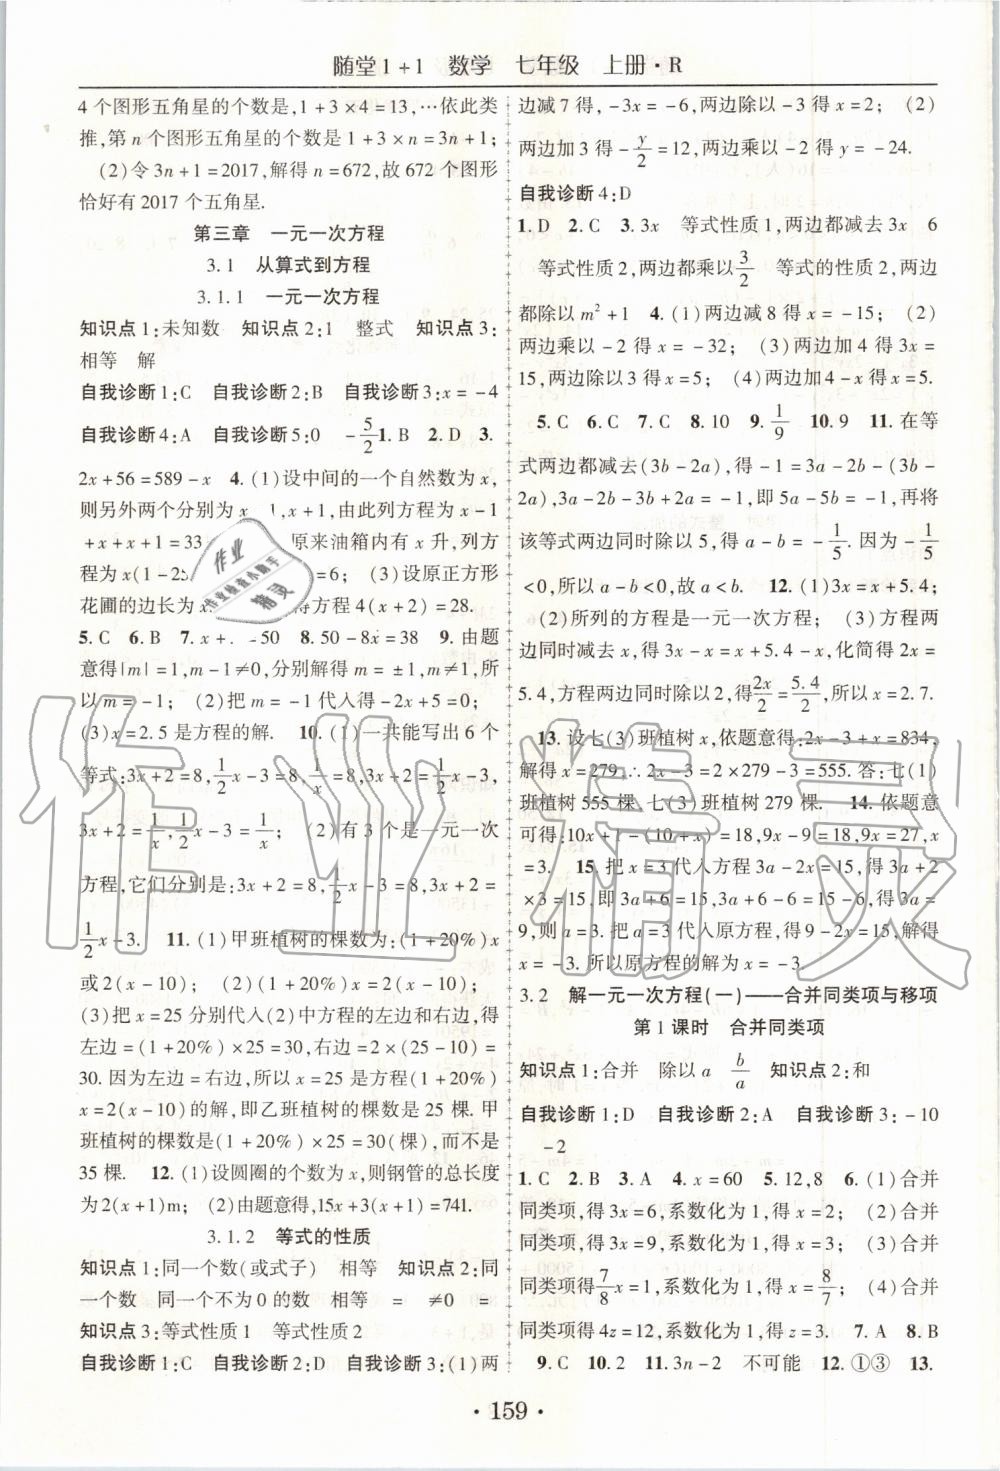 随堂1+1 数学 七年级 上册·R
4个图形五角星的个数是,1+3×4=13,…依此类
推,第n个图形五角星的个数是1+3×n=3n+1;
(2)令3n+1=2017,解得n=672,故672个图形
恰好有2017个五角星.
第三章 一元一次方程
3.1 从算式到方程
3.1.1 一元一次方程
知识点1:未知数 知识点2:1 整式 知识点3:
相等 解
自我诊断1:C 自我诊断2:B 自我诊断3:x=-4
自我诊断4:A 自我诊断5:0 -5/2 1.B 2.D 3.
2x+56=589-x 4.(1)设中间的一个自然数为x,
则另外两个分别为x 1,x+1,由此列方程为x-1
+x+x+1=33 原来油箱内有x升,列方
程为x(1-25 =6;(3)设原正方形
花圃的边长为x 得方程4(x+2)=28.
5.C 6.B 7.x+ 50 8.50-8x=38 9.由题
意得|m|=1,m-1≠0,分别解得m=±1,m≠1,所
以m=-1;(2)把m=-1代入得-2x+5=0;
(3)x=2.5是方程的解. 10.(1)一共能写出6个
等式:3x+2=8,1/2x-3=8,1/x=8,3x+2=1/2x-3,
3x+2=1/x,1/2x-3=1/x;(2)有3个是一元一次
方程,它们分别是:3x+2=8,1/2x-3=8,3x+2=
1/2x-3. 11.(1)甲班植树的棵数为:(1+20%)x
或2(x-10);(2)(1+20%)x=2(x-10);
(3)把x=25分别代入(2)中方程的左边和右边,得
左边=(1+20%)×25=30,右边=2×(25-10)=
30.因为左边=右边,所以x=25是方程(1+20%)
x=2(x-10)的解,即乙班植树的棵数是25棵.甲
班植树的棵数是(1+20%)×25=30(棵),而不是
35棵. 12.(1)设圆圈的个数为x,则钢管的总长度
为2(x+1)m;(2)由题意得,15x+3(x+1)=741.
3.1.2 等式的性质
知识点1:同一个数(或式子) 相等 知识点2:同
一个数 同一个不为0的数 相等 = ≠0 =
知识点3:等式性质1 等式性质2
自我诊断1:C 自我诊断2:D 自我诊断3:(1)两
边减7得,-3x=-6,两边除以-3得x=2;(2)
两边加3得-y/2=12,两边乘以-2得y=-24.
自我诊断4:D
1.D 2.C 3.3x 等式性质1,两边都减去3x 6
等式性质2,两边都乘以3/2 等式的性质2,两边
都除以m²+1 4.(1)两边减8得x=-15;(2)
两边乘以-2得x=-32;(3)两边加4得3x=
15,两边除以3得x=5;(4)两边加4-x得x=5.
5.C 6.C 7.C 8.10 9.1/9 10.9 11.在等
式两边都减去(3b-2a),得-1=3a-2b-(3b-
2a),3a-2b-3b+2a=-1,即5a-5b=-1,再将
该等式两边同时除以5,得a-b=-1/5.因为-1/5
<0,所以a-b<0,故a<b. 12.(1)3x=x+5.4;
(2)所列的方程是一元一次方程;(3)方程两
边同时减去x,得3x-x=x+5.4-x,化简得2x=
5.4,方程两边同时除以2,得2x/2=5.4/2,所以x=2.7.
13.设七(3)班植树x,依题意得:2x-3+x=834,
解得x=279,∴2x-3=2×279-3=555.答:七(1)
班植树555棵,七(3)班植树279棵. 14.依题意
可得:10x+1-(10+x)=18,9x-9=18,9x=27,x
=3. 15.把x=3代入方程3a-2x=15,得3a+2
×3=15,即3a+6=15,3a+6-6=15-6,得3a=
9,则a=3.把a=3代入原方程,得9-2x=15,解得
x=-3.所以原方程的解为x=-3
3.2 解一元一次方程(一)——合并同类项与移项
第1课时 合并同类项
知识点1:合并 除以a b/a 知识点2:和
自我诊断1:D 自我诊断2:A 自我诊断3:-10
-2
1.C 2.B 3.A 4.x=60 5.12,8 6.(1)合并
同类项,得3x=6,系数化为1,得x=2;(2)合并
同类项,得3x=9,系数化为1,得x=3;(3)合并
同类项得7/8x=1,系数化为1,得x=8/7;(4)合并
同类项得4z=12,系数化为1,得z=3. 7.A 8.B
9.C 10.2 11.3n-2 不可能 12.①③ 13.
·159·
作业精灵
作业
作业检查小助手
精灵